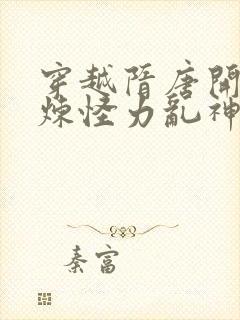 穿越隋唐開
煉怪力亂神
秦富